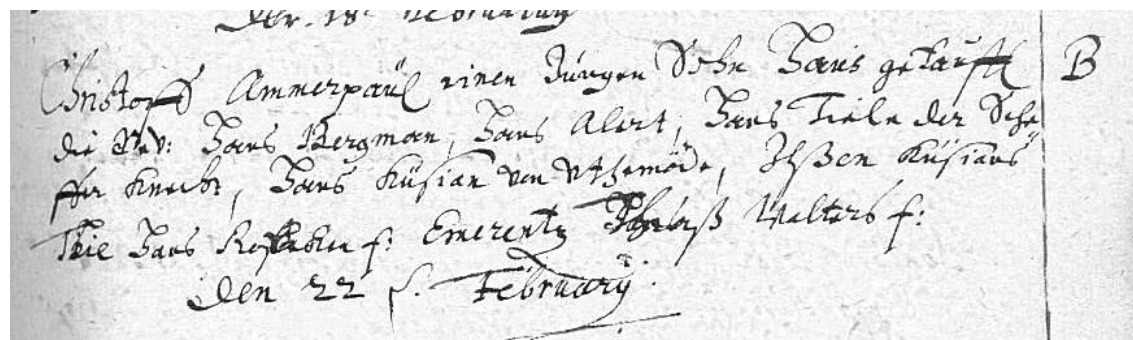 Den 18 February
Christoff Ammerpaul einen Jungen Sohn Hans getaufft B
die Gev: Hans Bergman, Hans Alert, Hans Tiele der Sche
ffer Knecht, Hans Küsian von Utzmöde, Ilsen Küsians
Thie Hans f: Emerentz Walters f:
den 22 f. February.